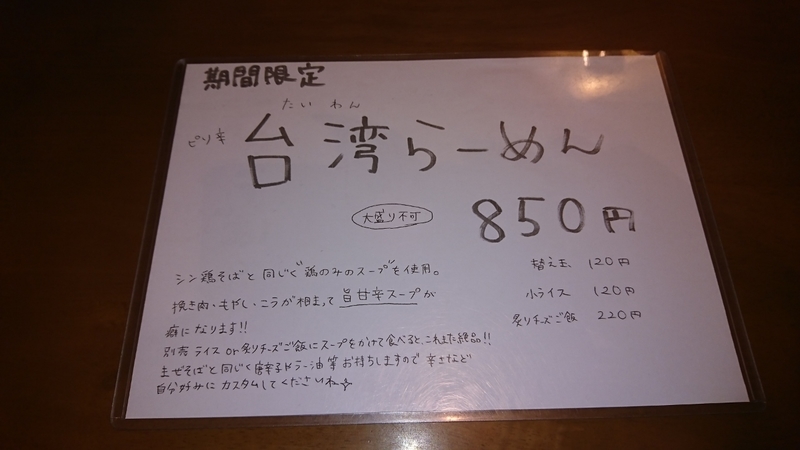 期間限定
たいわん
ピリ辛 台湾らーめん
大盛り不可
850円
替え玉 120円
小ライス 120円
炙りチーズご飯 220円
シン鶏そばと同じく"鶏のみのスープ"を使用。
挽き肉・もやし・ニラが相まって旨甘辛スープが
癖になります!!
別売ライスor炙りチーズご飯にスープをかけて食べると、これまた絶品!!
まぜそばと同じく唐辛子やラー油等お持ちしますので辛さなど
自分好みにカスタムしてくださいね